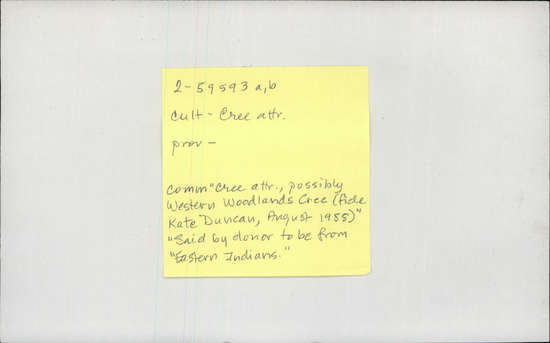 2-59593 a,b
cult - Cree attr.
prov -
comm "Cree attr., possibly
Western Woodlands Cree (fide
Kate Duncan, August 1985)"
"Said by donor to be from
"Eastern Indians."